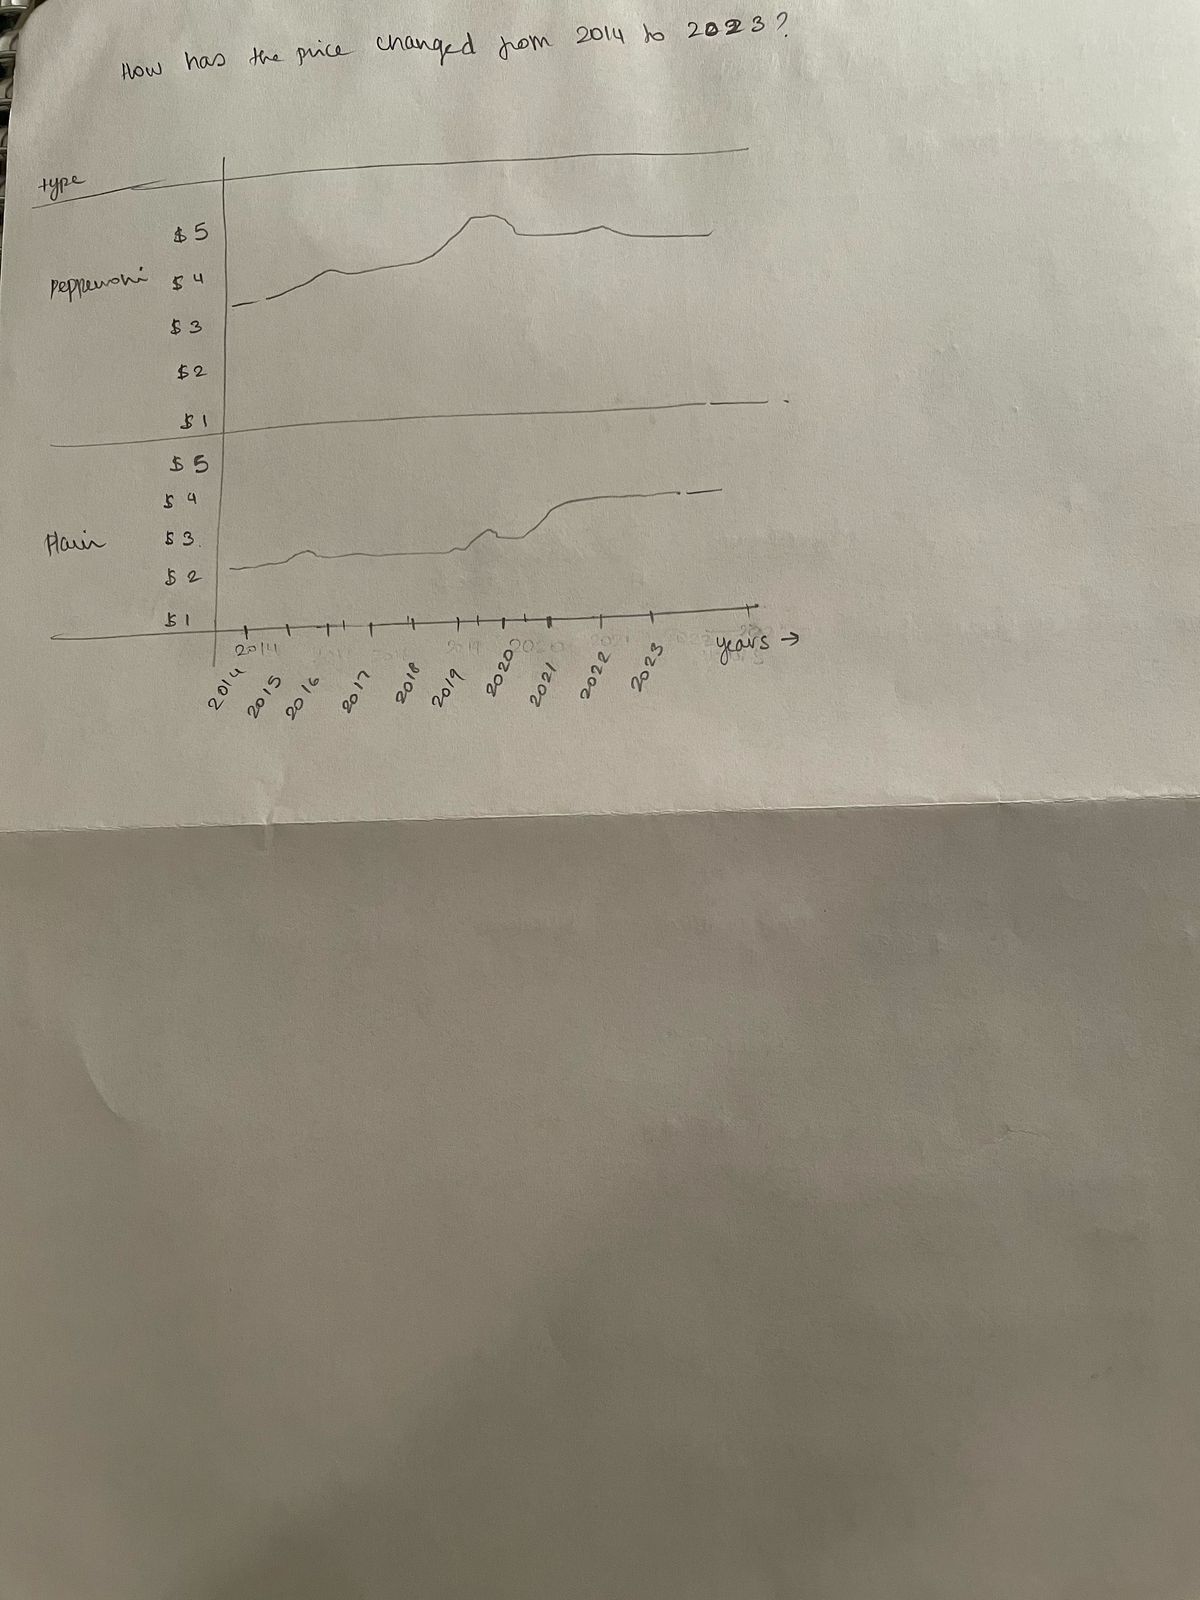 How has the price changed from 2014 to 2023?
type
$5
Pepperoni $4
$3
$2
$1
$5
$4
Plain $3
$2
$1
2014
years →
2014 2015 2016 2017 2018 2019 2020 2021 2022 2023